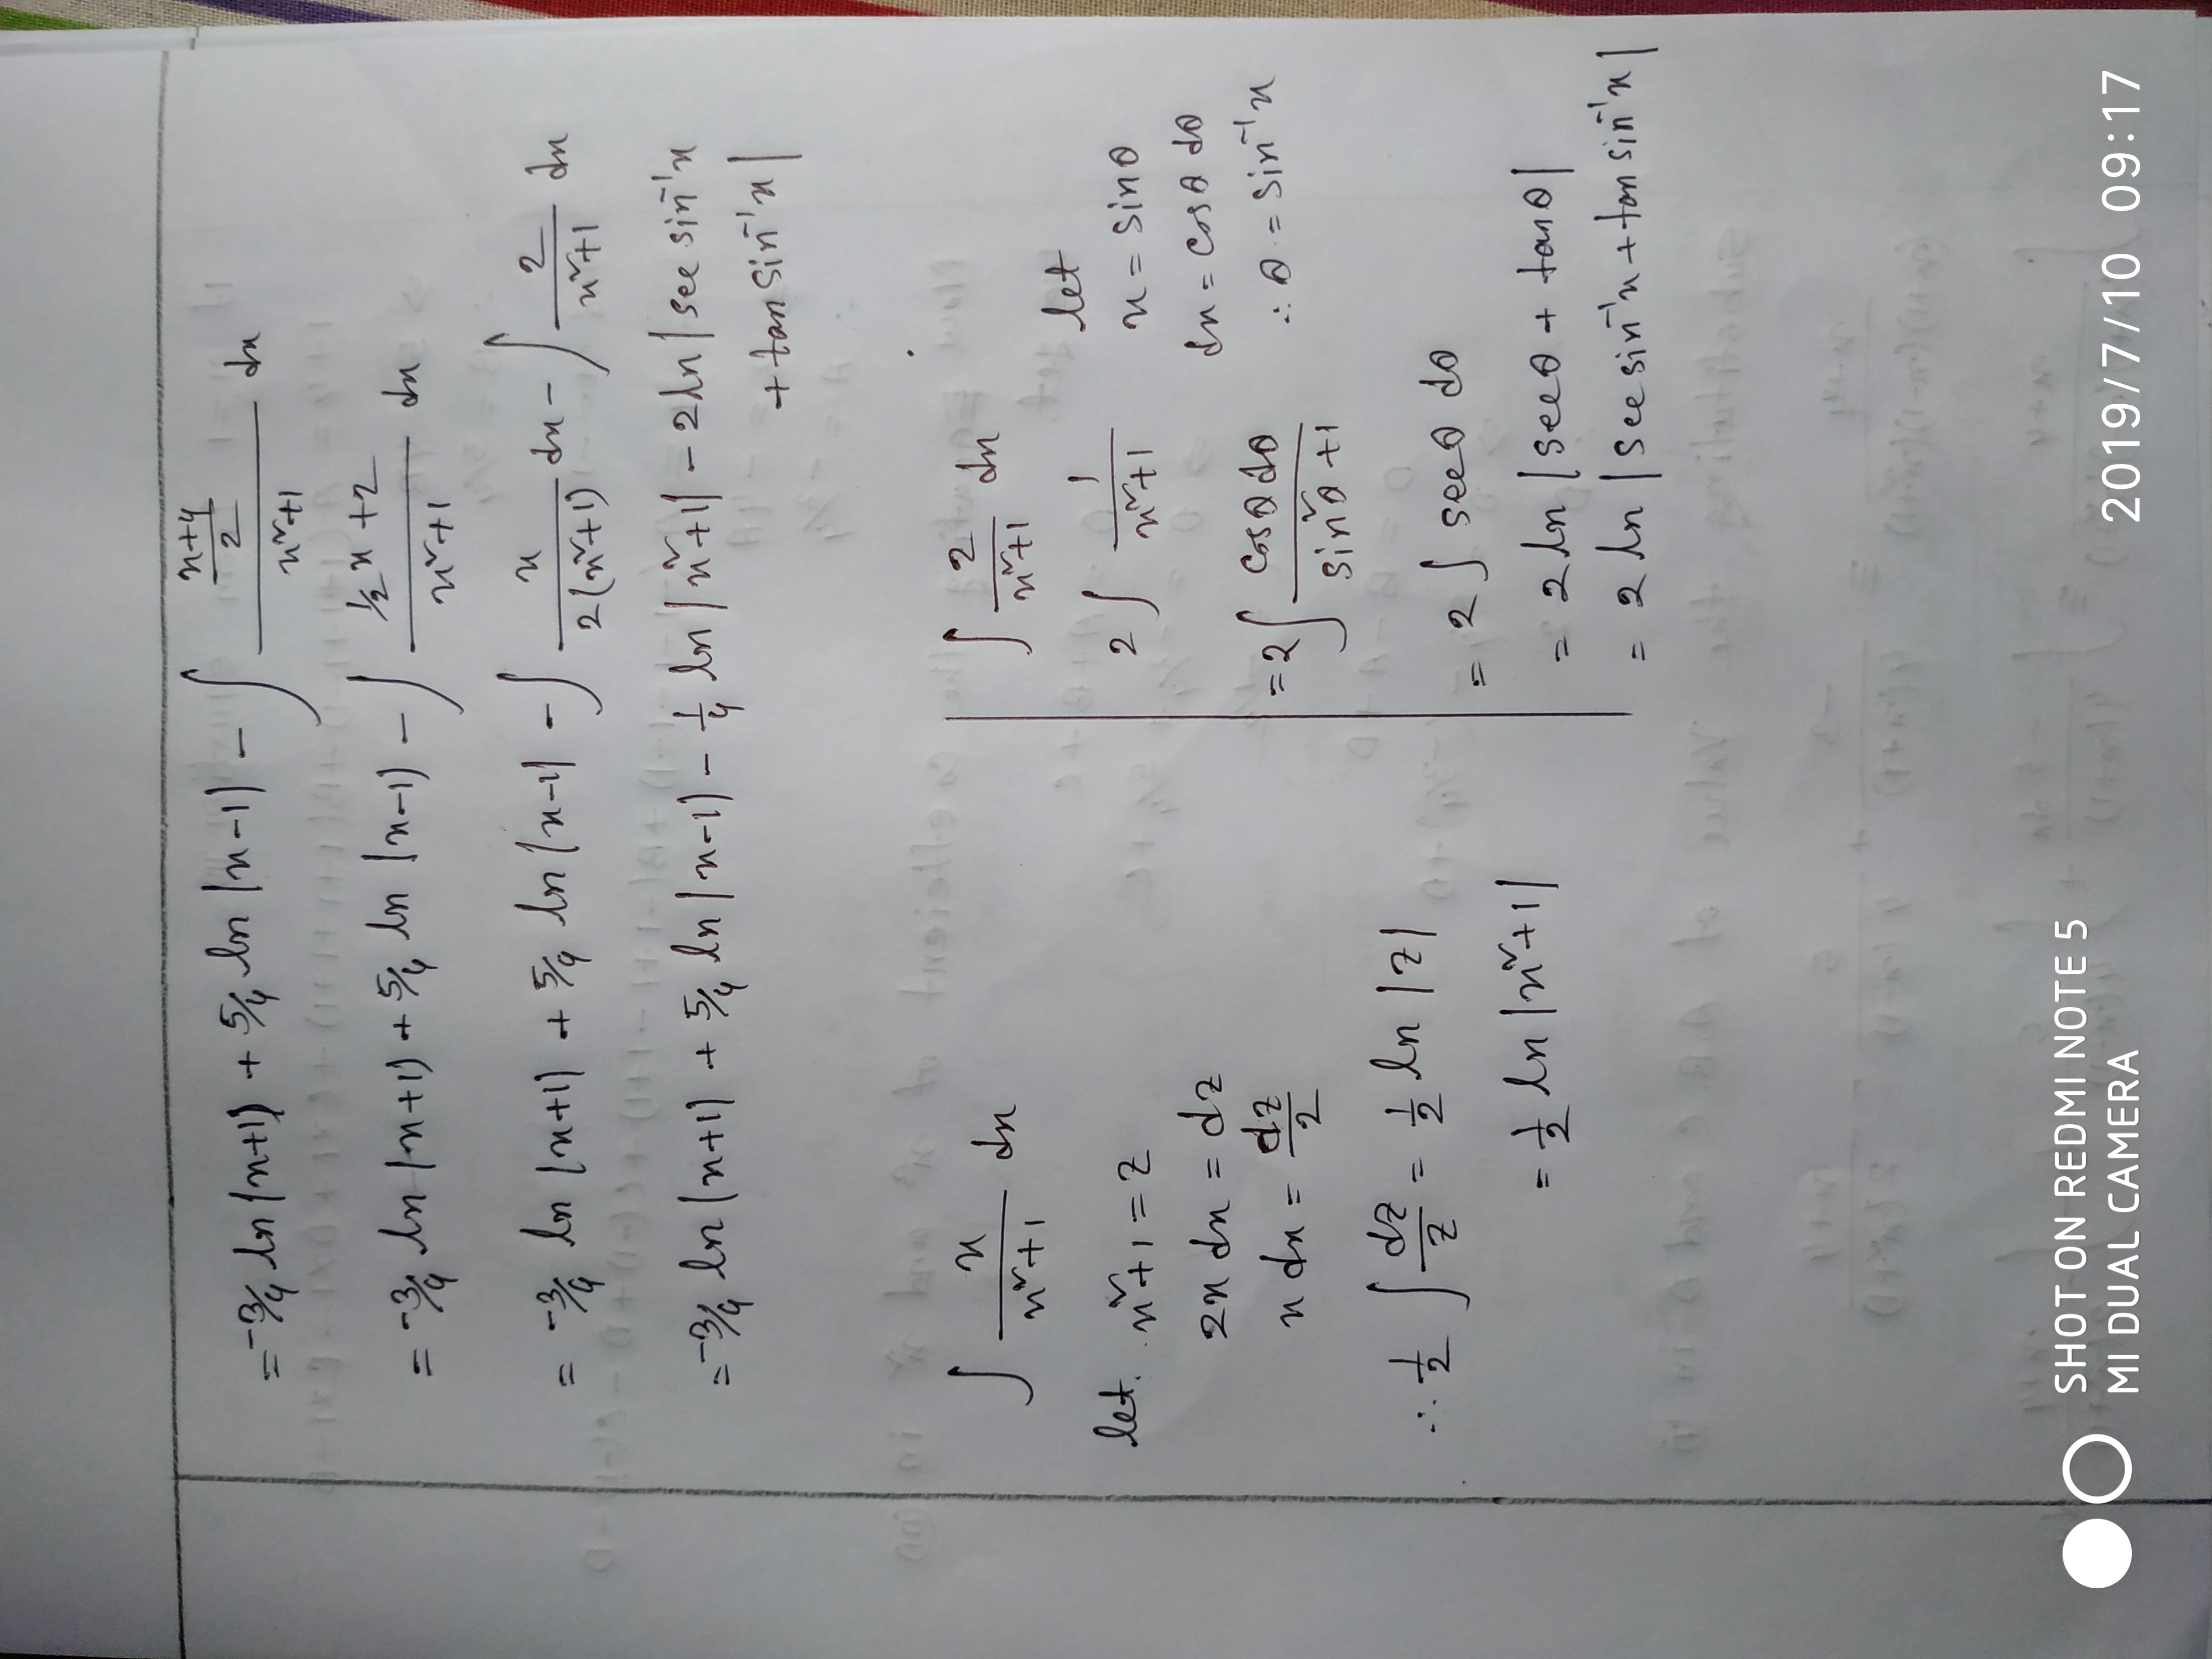 = -3/4 ln |x+1| + 5/4 ln |x-1| - ∫ ((x+4)/2)/(x²+1) dx
= -3/4 ln |x+1| + 5/4 ln |x-1| - ∫ (1/2 x + 2)/(x²+1) dx
= -3/4 ln |x+1| + 5/4 ln |x-1| - ∫ x/(2(x²+1)) dx - ∫ 2/(x²+1) dx
= -3/4 ln |x+1| + 5/4 ln |x-1| - 1/4 ln |x²+1| - 2 ln | sec sin⁻¹x
+ tan sin⁻¹x |
∫ x/(x²+1) dx
let. x²+1 = z
2x dx = dz
x dx = dz/2
∴ 1/2 ∫ dz/z = 1/2 ln |z|
= 1/2 ln |x²+1|
∫ 2/(x²+1) dx
2 ∫ 1/(x²+1)
let
x = sinθ
dx = cosθ dθ
∴ θ = sin⁻¹x
= 2 ∫ cosθ dθ/(sin²θ + 1)
= 2 ∫ secθ dθ
= 2 ln | secθ + tanθ |
= 2 ln | sec sin⁻¹x + tan sin⁻¹x |
SHOT ON REDMI NOTE 5
MI DUAL CAMERA
2019/7/10 09:17